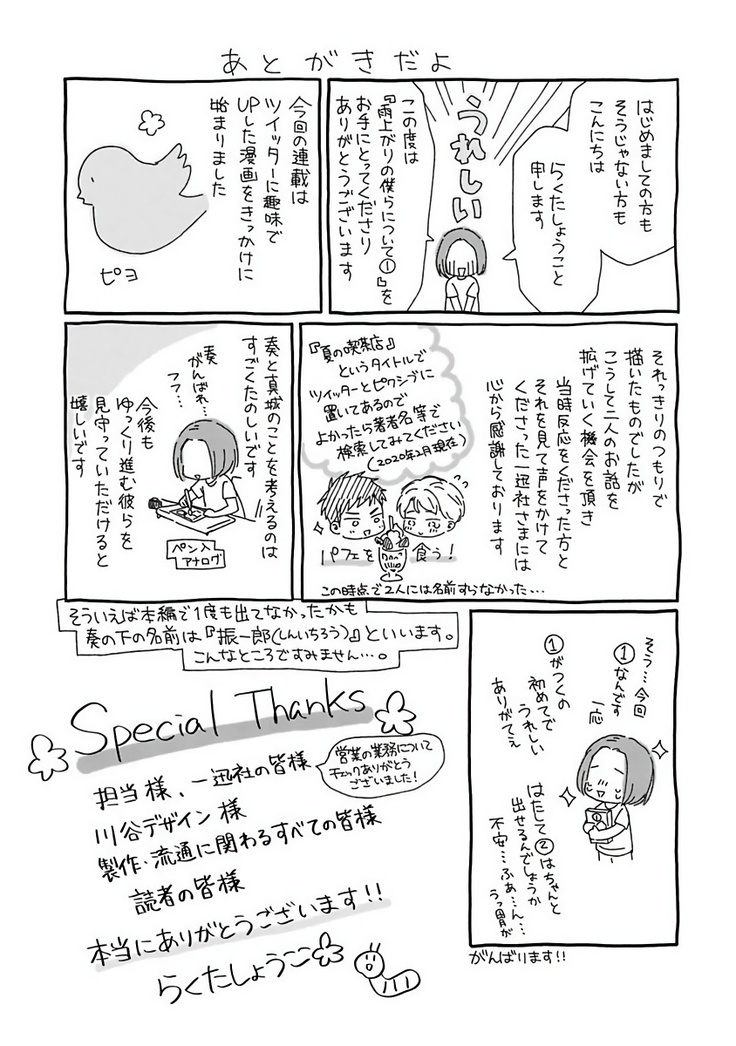 あとがきだよ
はじめましての方も
そうじゃない方も
こんにちは
らくたしょうこと
申します
うれしい
この度は
『雨上がりの僕らについて①』を
お手にとってくださり
ありがとうございます
今回の連載は
ツイッターに趣味で
UPした漫画をきっかけに
始まりました
ピヨ
それっきりのつもりで
描いたものでしたが
こうして二人のお話を
拡げていく機会を頂き
当時反応をくださった方と
それを見て声をかけて
くださった一迅社さまには
心から感謝しております
『夏の喫茶店』
というタイトルで
ツイッターとピクシブに
置いてあるので
よかったら著者名等で
検索してみてください
(2020年2月現在)
パフェを食う!
この時点で2人には名前すらなかった…
奏と真城のことを考えるのは
すごくたのしいです
奏
がんばれ…
フフ…
今後も
ゆっくり進む彼らを
見守っていただけると
嬉しいです
ペン入
アナログ
そういえば本編で1度も出てなかったかも
奏の下の名前は『振一郎(しんいちろう)』といいます。
こんなところですみません…。
そう…今回
①なんです
一応
①がつくの
初めてで
うれしい
ありがてえ
はたして②はちゃんと
出せるんでしょうか
不安…ふぁ…ん…
うっ胃が
がんばります!!
Special Thanks
担当様、一迅社の皆様
営業の業務について
チェックありがとう
ございました!
川谷デザイン様
製作・流通に関わるすべての皆様
読者の皆様
本当にありがとうございます!!
らくたしょうこ